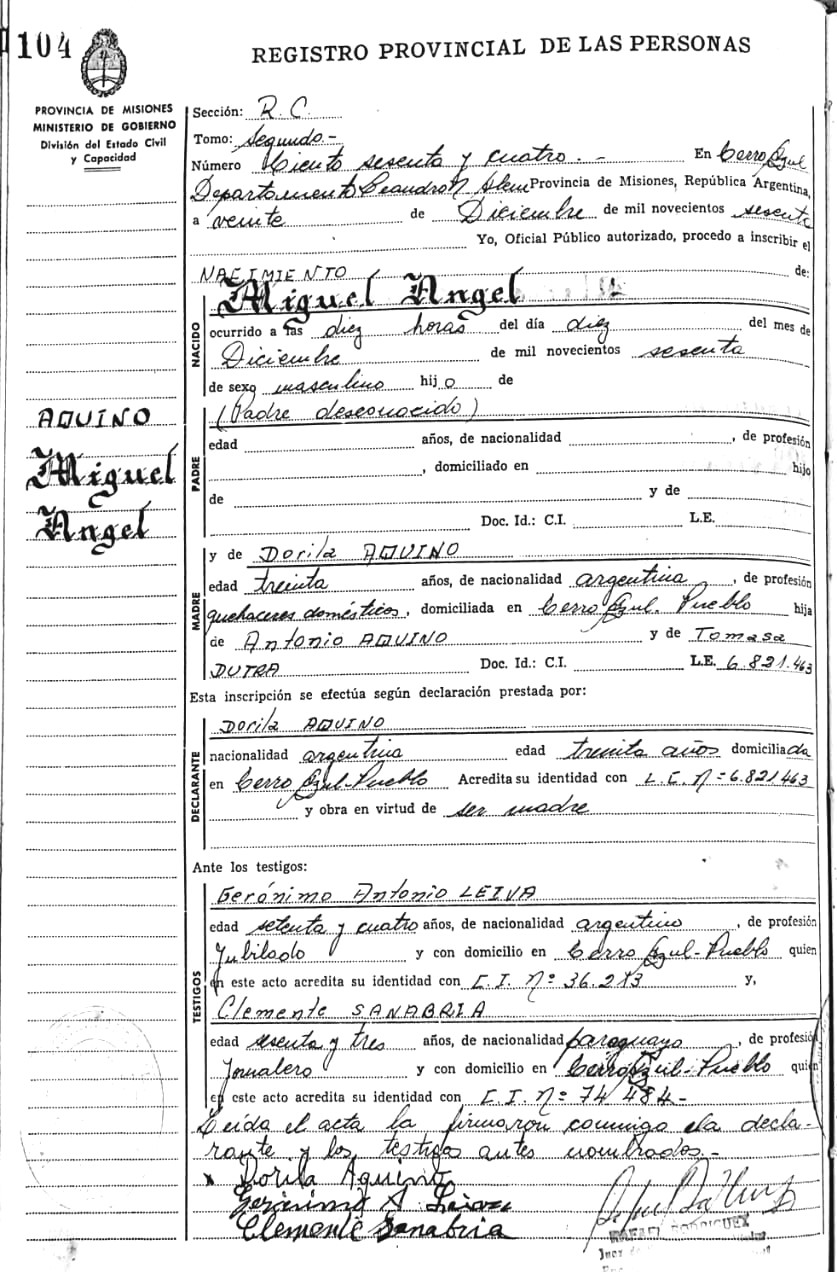 104
REGISTRO PROVINCIAL DE LAS PERSONAS
PROVINCIA DE MISIONES
MINISTERIO DE GOBIERNO
División del Estado Civil
y Capacidad
AQUINO
Miguel
Angel
Sección: R. C.
Tomo: Segundo.-
Número Ciento sesenta y cuatro. - En Cerro Azul
Departamento Leandro N. Alem Provincia de Misiones, República Argentina,
a veinte de Diciembre de mil novecientos sesenta
Yo, Oficial Público autorizado, procedo a inscribir el
NACIMIENTO de:
NACIDO
Miguel Angel
ocurrido a las diez horas del día diez del mes de
Diciembre de mil novecientos sesenta
de sexo masculino hijo de
PADRE
(Padre desconocido)
edad años, de nacionalidad , de profesión
, domiciliado en hijo
de y de
Doc. Id.: C.I. L.E.
MADRE
y de Dorila AQUINO
edad treinta años, de nacionalidad argentina, de profesión
quehaceres domésticos, domiciliada en Cerro Azul. Pueblo hija
de Antonio AQUINO y de Tomasa
DUTRA Doc. Id.: C.I. L.E. 6.821.463
Esta inscripción se efectúa según declaración prestada por:
DECLARANTE
Dorila AQUINO
nacionalidad argentina edad treinta años domiciliada
en Cerro Azul-Pueblo Acredita su identidad con L.C. Nº 6.821463
y obra en virtud de ser madre
Ante los testigos:
TESTIGOS
Gerónimo Antonio LEIVA
edad setenta y cuatro años, de nacionalidad argentino, de profesión
Jubilado y con domicilio en Cerro Azul-Pueblo quien
en este acto acredita su identidad con C.I. Nº 36.213 y,
Clemente SANABRIA
edad sesenta y tres años, de nacionalidad paraguayo, de profesió
Jornalero y con domicilio en Cerro Azul-Pueblo quien
en este acto acredita su identidad con C.I. Nº 74 484-
Leída el acta la firmaron conmigo ela decla-
rante y los testigos antes nombrados.-
x Dorila Aquino
Gerónimo A. Leiva
Clemente Sanabria
RAFAEL RODRIGUEZ
Juez